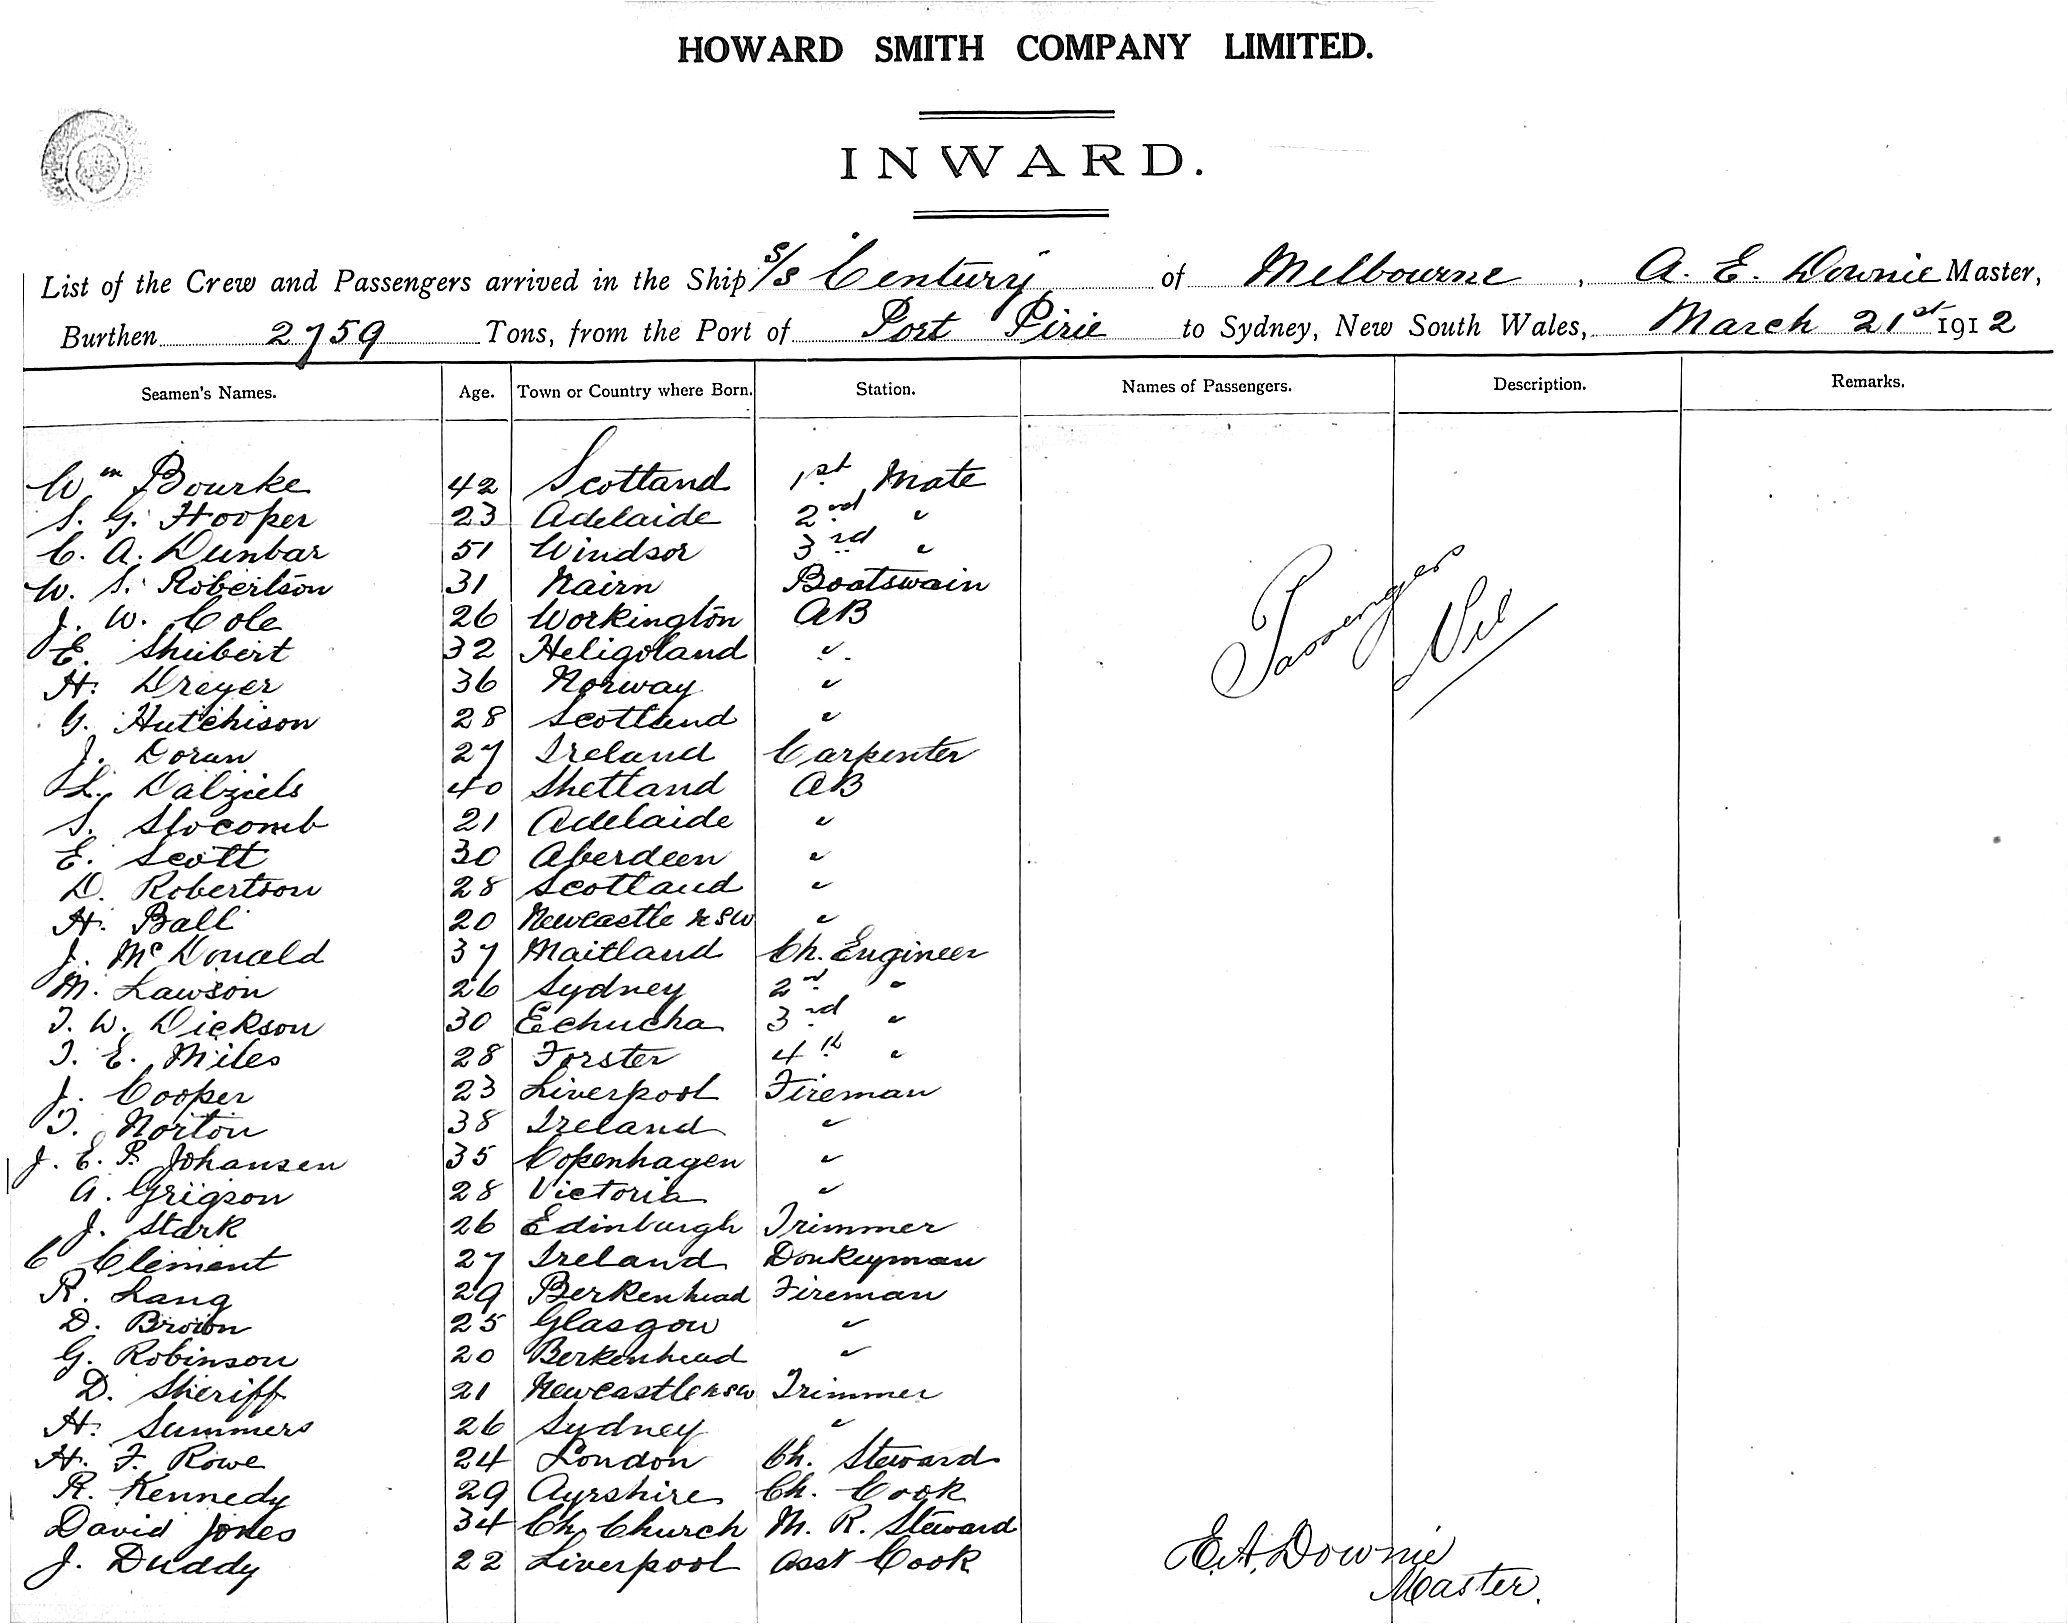 HOWARD SMITH COMPANY LIMITED.
INWARD.
List of the Crew and Passengers arrived in the Ship S/S Century of Melbourne, A. E. Downie Master,
Burthen 2759 Tons, from the Port of Port Pirie to Sydney, New South Wales, March 21st 1912
Seamen's Names. Age. Town or Country where Born. Station. Names of Passengers. Description. Remarks.
Wm Bourke 42 Scotland 1st Mate
S. G. Hooper 23 Adelaide 2nd "
C. A. Dunbar 51 Windsor 3rd "
W. S. Robertson 31 Nairn Boatswain
J. W. Cole 26 Workington AB
E. Shubert 32 Heligoland "
H. Dreyer 36 Norway "
G. Hutchison 28 Scotland "
J. Doran 27 Ireland Carpenter
L. Dalziels 40 Shetland AB
S. Slocomb 21 Adelaide "
E. Scott 30 Aberdeen "
D. Robertson 28 Scotland "
H. Ball 20 Newcastle NSW "
J. McDonald 37 Maitland Ch. Engineer
M. Lawson 26 Sydney 2nd "
T. W. Dickson 30 Echucha 3rd "
T. E. Miles 28 Forster 4th "
J. Cooper 23 Liverpool Fireman
T. Norton 38 Ireland "
J. E. P. Johansen 35 Copenhagen "
A. Grigson 28 Victoria "
J. Stark 26 Edinburgh Trimmer
C Clement 27 Ireland Donkeyman
R. Lang 29 Berkenhead Fireman
D. Brown 25 Glasgow "
G. Robinson 20 Berkenhead "
D. Sheriff 21 Newcastle NSW Trimmer
H. Summers 26 Sydney "
H. F. Rowe 24 London Ch. Steward
R. Kennedy 29 Ayrshire Ch. Cook
David Jones 34 Ch. Church M. R. Steward
J. Duddy 22 Liverpool Asst Cook
Passenger Nil
E. A. Downie
Master.